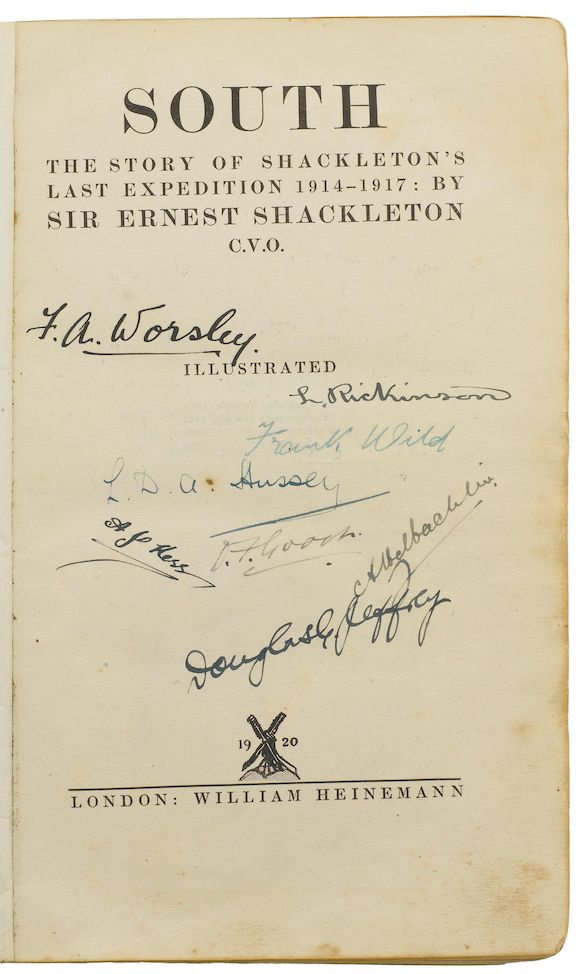 SOUTH
THE STORY OF SHACKLETON'S
LAST EXPEDITION 1914–1917: BY
SIR ERNEST SHACKLETON
C.V.O.
F. A. Worsley.
ILLUSTRATED
L. Rickinson
Frank Wild
L. D. A. Hussey
Gooch.
Douglas G. Jeffrey
19 20
LONDON: WILLIAM HEINEMANN